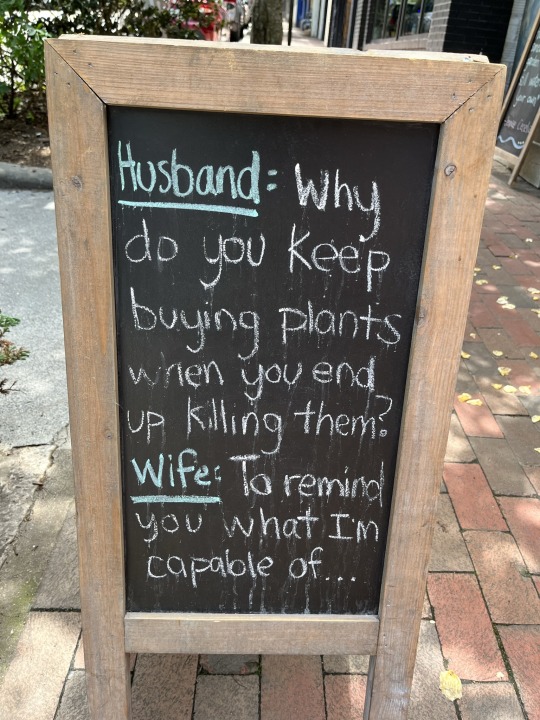 Husband: Why
do you keep
buying plants
when you end
up killing them?
Wife: To remind
you what I'm
capable of...